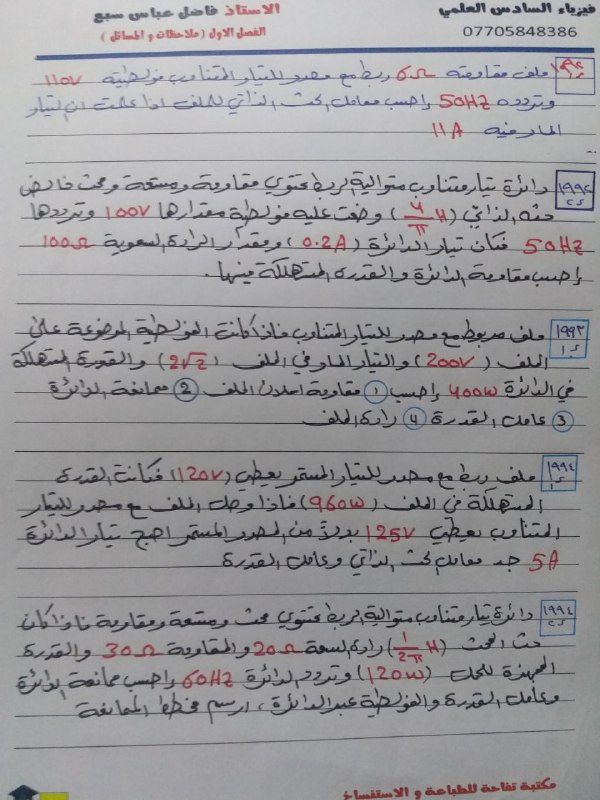 فيزياء السادس العلمي
07705848386
الاستاذ فاضل عباس سبع
الفصل الاول (ملاحظات و المسائل)
ملف مقاومته 6Ω ربط مع مصدر للتيار المتناوب فولطيته 110V
وتردده 50HZ إحسب معامل الحث الذاتي للملف اذا علمت ان التيار
المار فيه 11A
١٩٩٢ د٢ دائرة تيار متناوب متوالية الربط تحتوي مقاومة ومتسعة ومحث خالص
حثه الذاتي (4/π H) وضعت عليه فولطية مقدارها 100V وترددها
50HZ فكان تيار الدائرة (0.2A) ومقدار الرادة السعوية 100Ω
إحسب مقاومة الدائرة والقدرة المستهلكة فيها.
١٩٩٣ د١ ملف مربوط مع مصدر للتيار المتناوب فاذا كانت الفولطية الموضوعة على
الملف (200V) والتيار المار في الملف (2√2) والقدرة المستهلكة
في الدائرة 400W إحسب ① مقاومة اسلاك الملف ② ممانعة الدائرة
③ عامل القدرة ④ رادة الملف
١٩٩٤ د١ ملف ربط مع مصدر للتيار المستمر يعطي (120V) فكانت القدرة
المستهلكة في الملف (960W) فاذا وصل الملف مع مصدر للتيار
المتناوب يعطي 125V بدلاً من المصدر المستمر اصبح تيار الدائرة
5A جد معامل الحث الذاتي وعامل القدرة
١٩٩٤ د٢ دائرة تيار متناوب متوالية الربط تحتوي محث ومتسعة ومقاومة فاذا كان
حث المحث (1/2π H) رادة السعة 20Ω والمقاومة 30Ω والقدرة
المجهزة للحمل (120W) وتردد الدائرة 60HZ إحسب ممانعة الدائرة
وعامل القدرة والفولطية عبر الدائرة، ارسم مخطط الممانعة
مكتبة تفاحة للطباعة و الاستنساخ